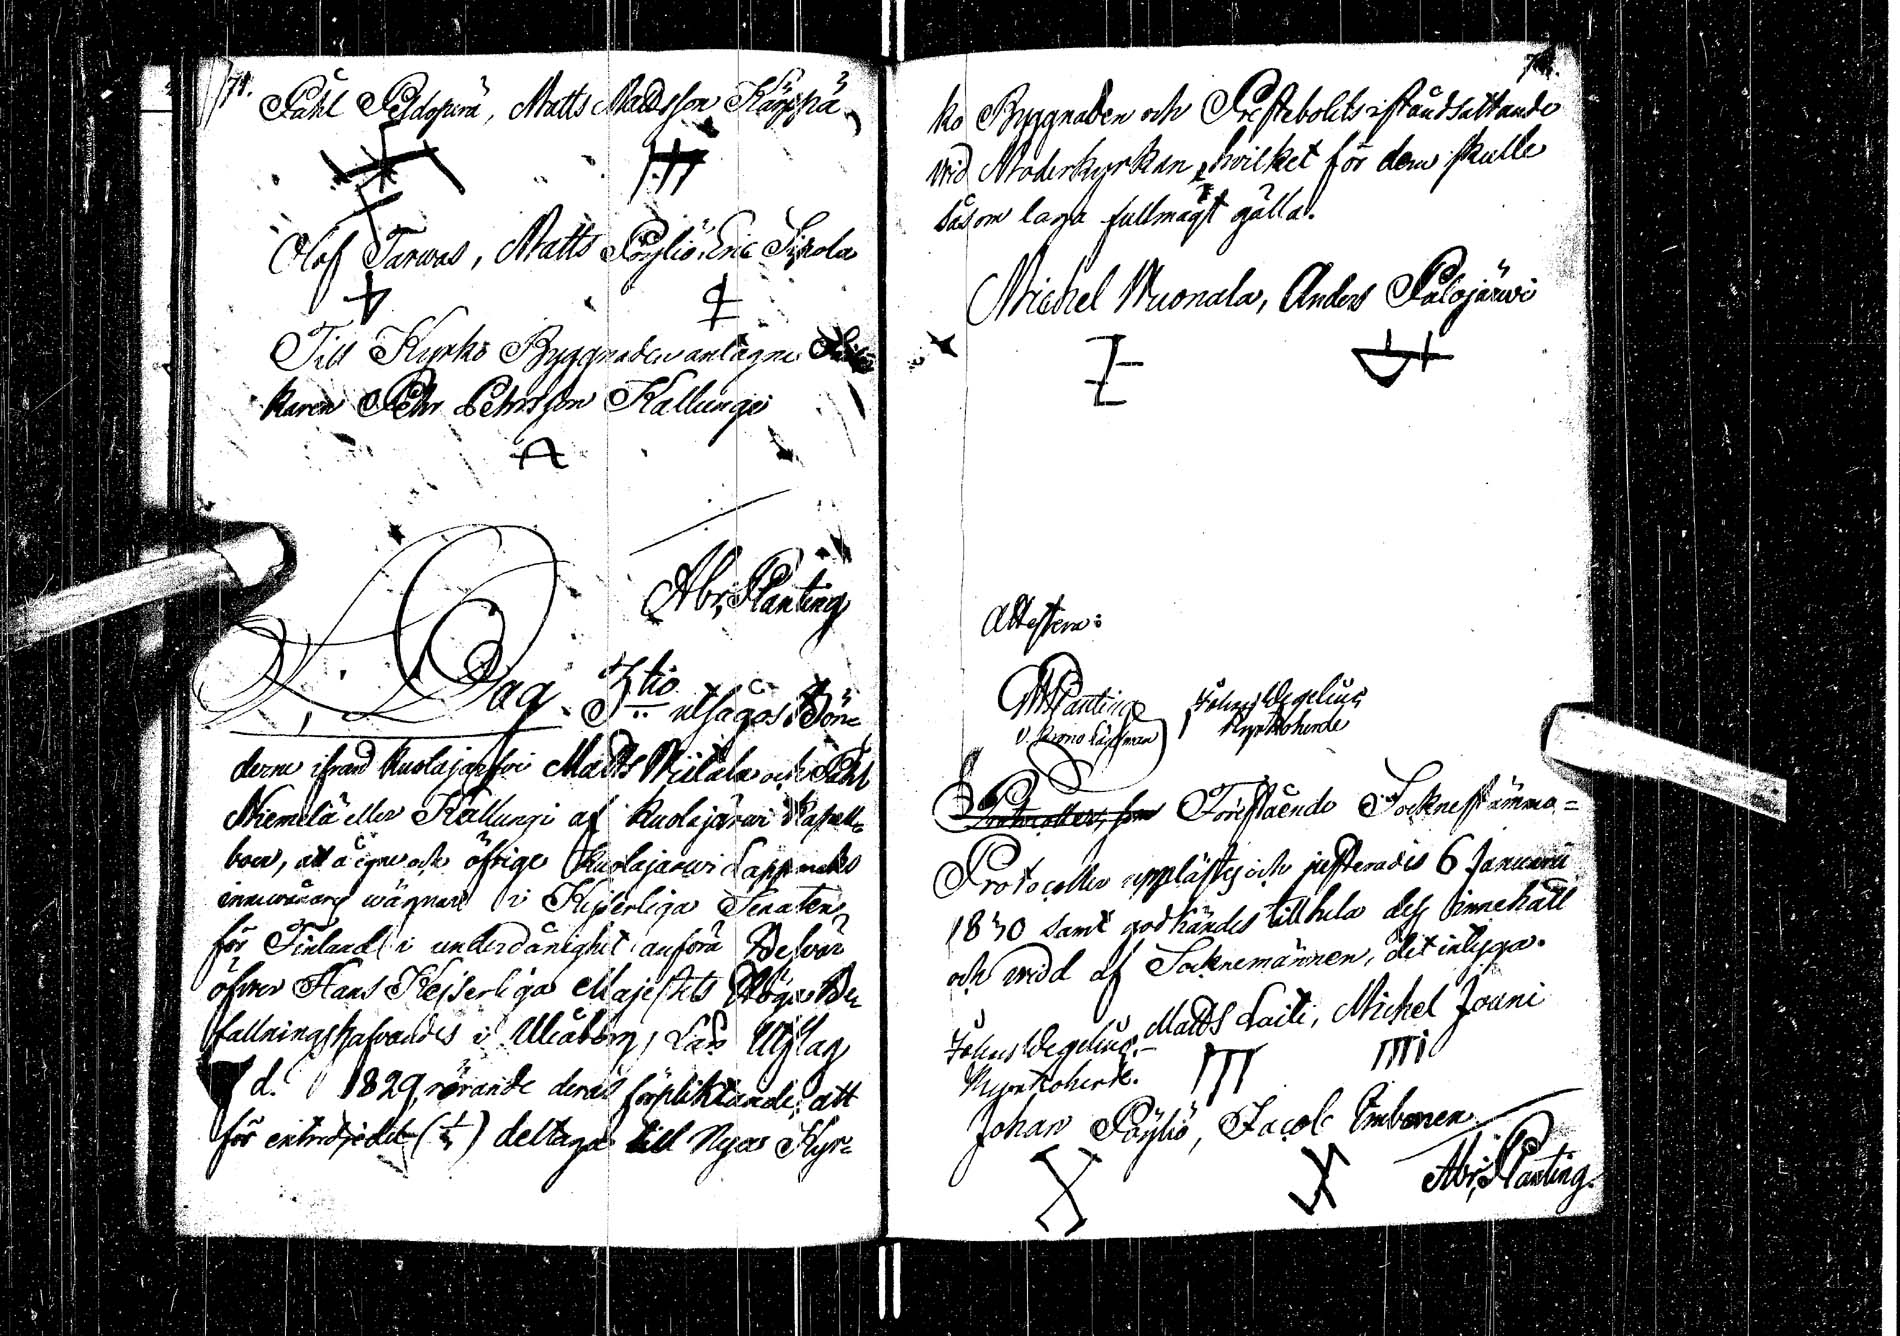 71.
Påhl Peldoperä, Matts Mattsson Kärppä
Olof Tarwas, Matts Pöyliö, Eric Sipola
Till Kyrko Byggnaden antagne
karen Pehr Pehrsson Kallungi
Abr. Planting
Dag. 3tio utsågos Bön-
derne ifrån Kuolajärfwi Matts Niskala och Påhl
Niemelä eller Kallungi af Kuolajärwi Kapell-
boer, att å egne och öfrige Kuolajärwi Lappmarks
innewånares wägnar i Kejserliga Senaten
för Finland i underdånighet anföra Beswär
öfwer Hans Kejserliga Majestets Höga Be-
fallningshafvandes i Uleåborgs Län Utslag
d. 1829, rörande deras förpliktande, att
för entredjedel (1/3) deltaga till Nya Kyr-
ko Byggnaden och Prestebolets iståndsättande
wid Moderkyrkan, hwilket för dem skulle
såsom laga fullmagt gälla.
Michel Wuonala, Anders Palojärwi
Attestera:
Planting
V. Krono Länsman
Johan Wegelius
Kyrkoherde
Protocollet, som Förestående Sockenstämmo-
Protocoller upplästes och justerades 6 Januarii
1830 samt godkändes till hela dess innehåll
och wid af Socknemännen, det intyga.
Johan Wegelius. Matts Laiti, Michel Jouni
Kyrkoherde.
Johan Pöyliö, Jacob Imbonen
Abr. Planting.